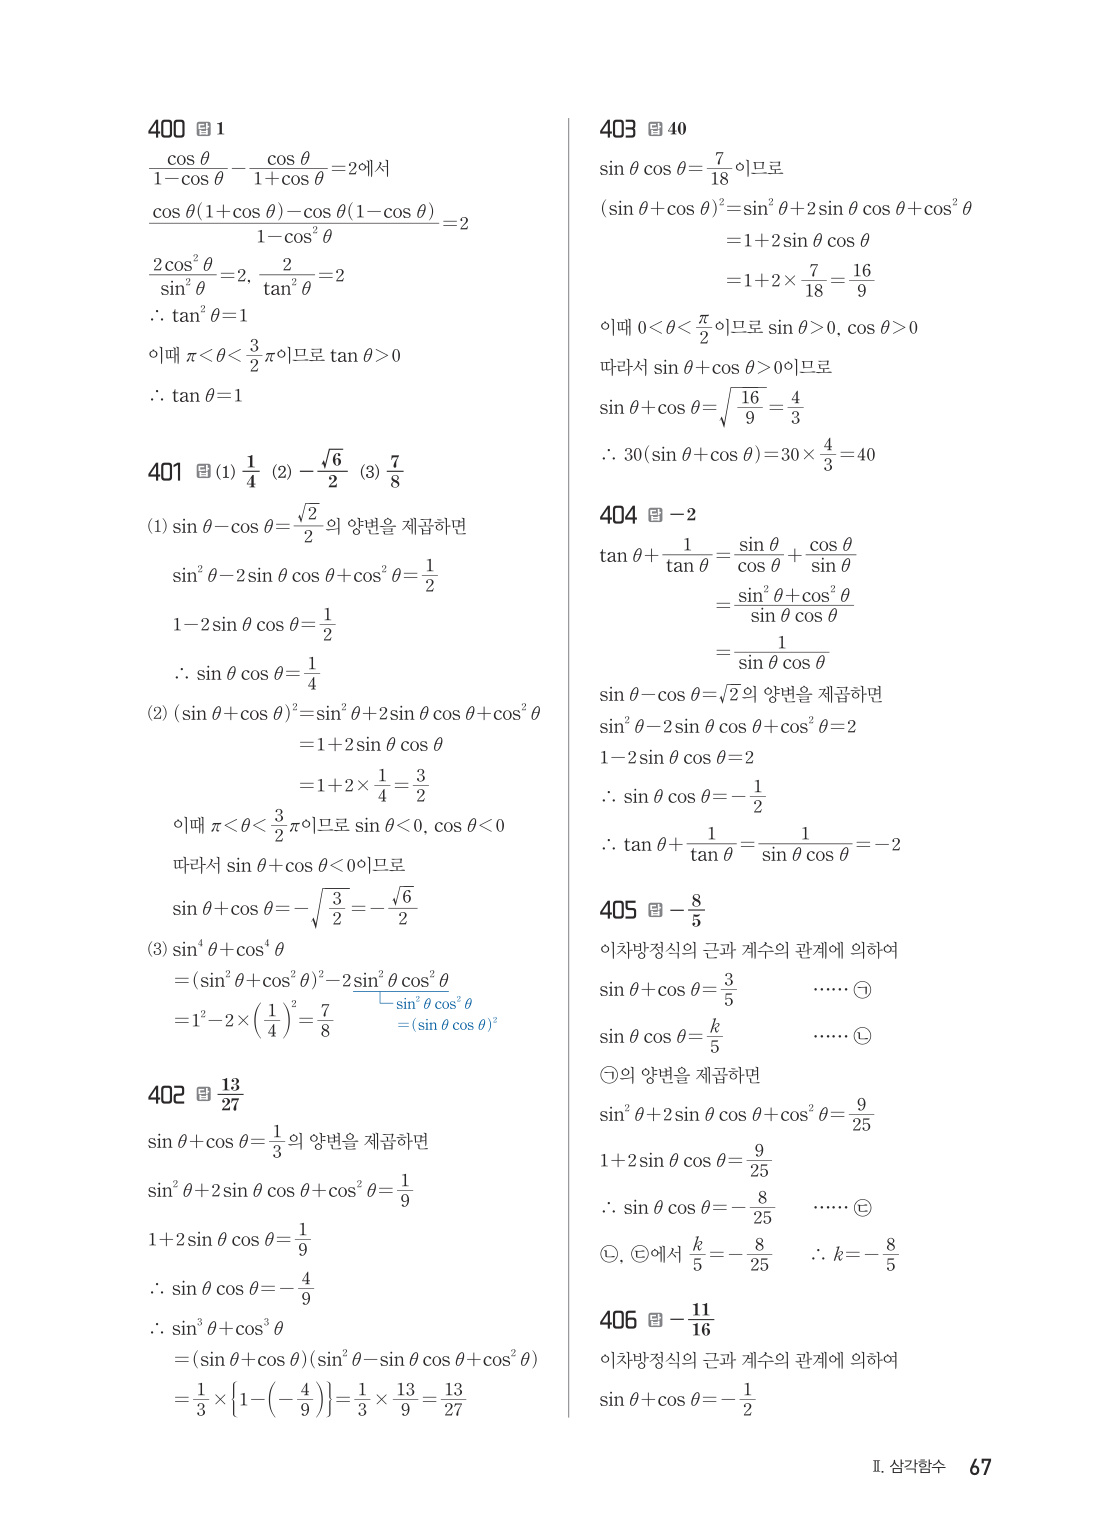 400 답 1
cos θ/(1-cos θ) - cos θ/(1+cos θ) =2에서
{cos θ(1+cos θ)-cos θ(1-cos θ)}/(1-cos² θ) =2
2cos² θ/sin² θ =2, 2/tan² θ =2
∴ tan² θ=1
이때 π<θ<3/2 π이므로 tan θ>0
∴ tan θ=1
401 답 (1) 1/4 (2) -√6/2 (3) 7/8
(1) sin θ-cos θ=√2/2 의 양변을 제곱하면
sin² θ-2sin θ cos θ+cos² θ=1/2
1-2sin θ cos θ=1/2
∴ sin θ cos θ=1/4
(2) (sin θ+cos θ)²=sin² θ+2sin θ cos θ+cos² θ
=1+2sin θ cos θ
=1+2×1/4=3/2
이때 π<θ<3/2 π이므로 sin θ<0, cos θ<0
따라서 sin θ+cos θ<0이므로
sin θ+cos θ=-√(3/2)=-√6/2
(3) sin⁴ θ+cos⁴ θ
=(sin² θ+cos² θ)²-2sin² θ cos² θ
sin² θ cos² θ
=1²-2×(1/4)²=7/8
=(sin θ cos θ)²
402 답 13/27
sin θ+cos θ=1/3 의 양변을 제곱하면
sin² θ+2sin θ cos θ+cos² θ=1/9
1+2sin θ cos θ=1/9
∴ sin θ cos θ=-4/9
∴ sin³ θ+cos³ θ
=(sin θ+cos θ)(sin² θ-sin θ cos θ+cos² θ)
=1/3×{1-(-4/9)}=1/3×13/9=13/27
403 답 40
sin θ cos θ=7/18 이므로
(sin θ+cos θ)²=sin² θ+2sin θ cos θ+cos² θ
=1+2sin θ cos θ
=1+2×7/18=16/9
이때 0<θ<π/2 이므로 sin θ>0, cos θ>0
따라서 sin θ+cos θ>0이므로
sin θ+cos θ=√(16/9)=4/3
∴ 30(sin θ+cos θ)=30×4/3=40
404 답 -2
tan θ+1/tan θ=sin θ/cos θ+cos θ/sin θ
=(sin² θ+cos² θ)/(sin θ cos θ)
=1/(sin θ cos θ)
sin θ-cos θ=√2 의 양변을 제곱하면
sin² θ-2sin θ cos θ+cos² θ=2
1-2sin θ cos θ=2
∴ sin θ cos θ=-1/2
∴ tan θ+1/tan θ=1/(sin θ cos θ)=-2
405 답 -8/5
이차방정식의 근과 계수의 관계에 의하여
sin θ+cos θ=3/5 …… ㉠
sin θ cos θ=k/5 …… ㉡
㉠의 양변을 제곱하면
sin² θ+2sin θ cos θ+cos² θ=9/25
1+2sin θ cos θ=9/25
∴ sin θ cos θ=-8/25 …… ㉢
㉡, ㉢에서 k/5=-8/25 ∴ k=-8/5
406 답 -11/16
이차방정식의 근과 계수의 관계에 의하여
sin θ+cos θ=-1/2
Ⅱ. 삼각함수 67